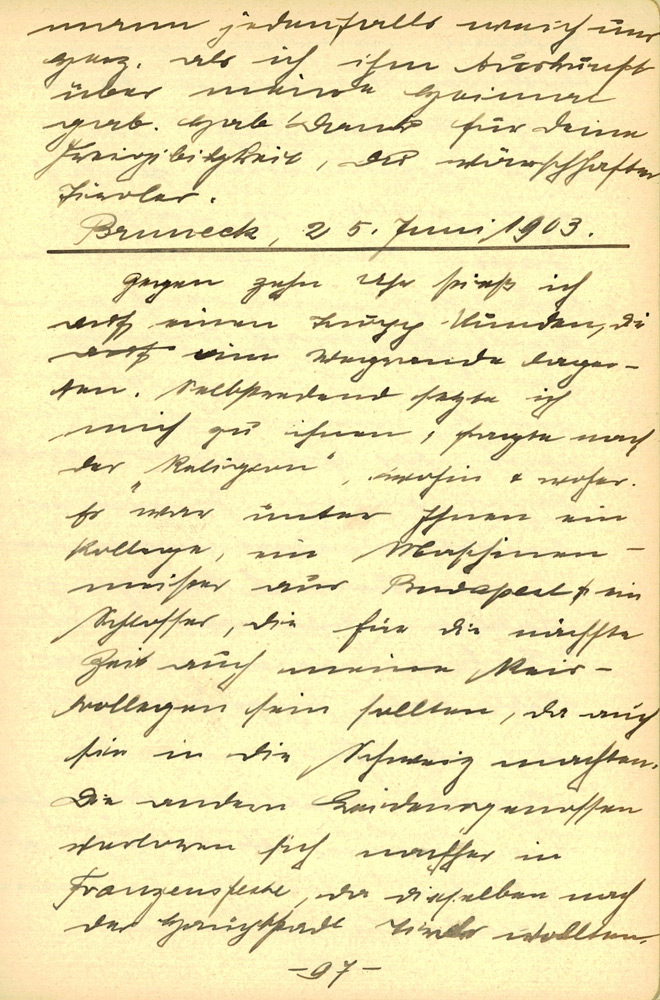 mann jedenfalls weich ums
Herz, als ich ihm Auskunft
über meine Heimat
gab. Hab Dank für deine
Freigibigkeit, du währschafter
Tiroler.
Bruneck, 25. Juni 1903.
Gegen zehn Uhr stieß ich
auf einen Trupp Kunden, die
auf am Wegrande lager-
ten. Selbstredend setzte ich
mich zu ihnen, fragte nach
der „Religion“, wohin & woher.
Es war unter Ihnen ein
Kollege, ein Maschinen-
meister aus Budapest & ein
Schlosser, die für die nächste
Zeit auch meine Reis-
kollegen sein sollten, da auch
sie in die Schweiz machten.
Die andern Leidensgenossen
verloren sich nachher in
Franzensfeste, da dieselben nach
der Hauptstadt Tirols wollten.
-97-